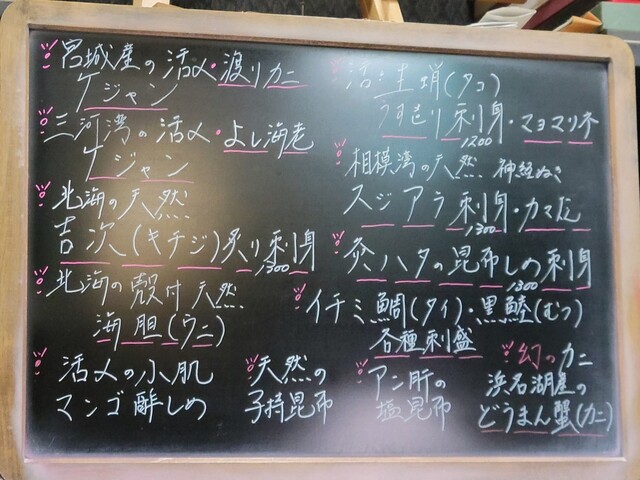 宮城産の活〆・渡りカニ
ケジャン
三河湾の活〆・よし海老
ケジャン
北海の天然
吉次(キチジ)炙り刺身
1300
北海の殻付天然
海胆(ウニ)
活〆の小肌
マンゴ酢しめ
天然の
子持昆布
活・生蛸(タコ)
うすどり刺身・マヨマリネ
1200
相模湾の天然 神経ぬき
スジアラ刺身・カマ尼
1300
灸ハタの昆布しめ刺身
1300
イチミ鯛(タイ)・黒鯥(むつ)
各種刺盛
アン肝の
塩昆布
幻のカニ
浜名湖産の
どうまん蟹(カニ)